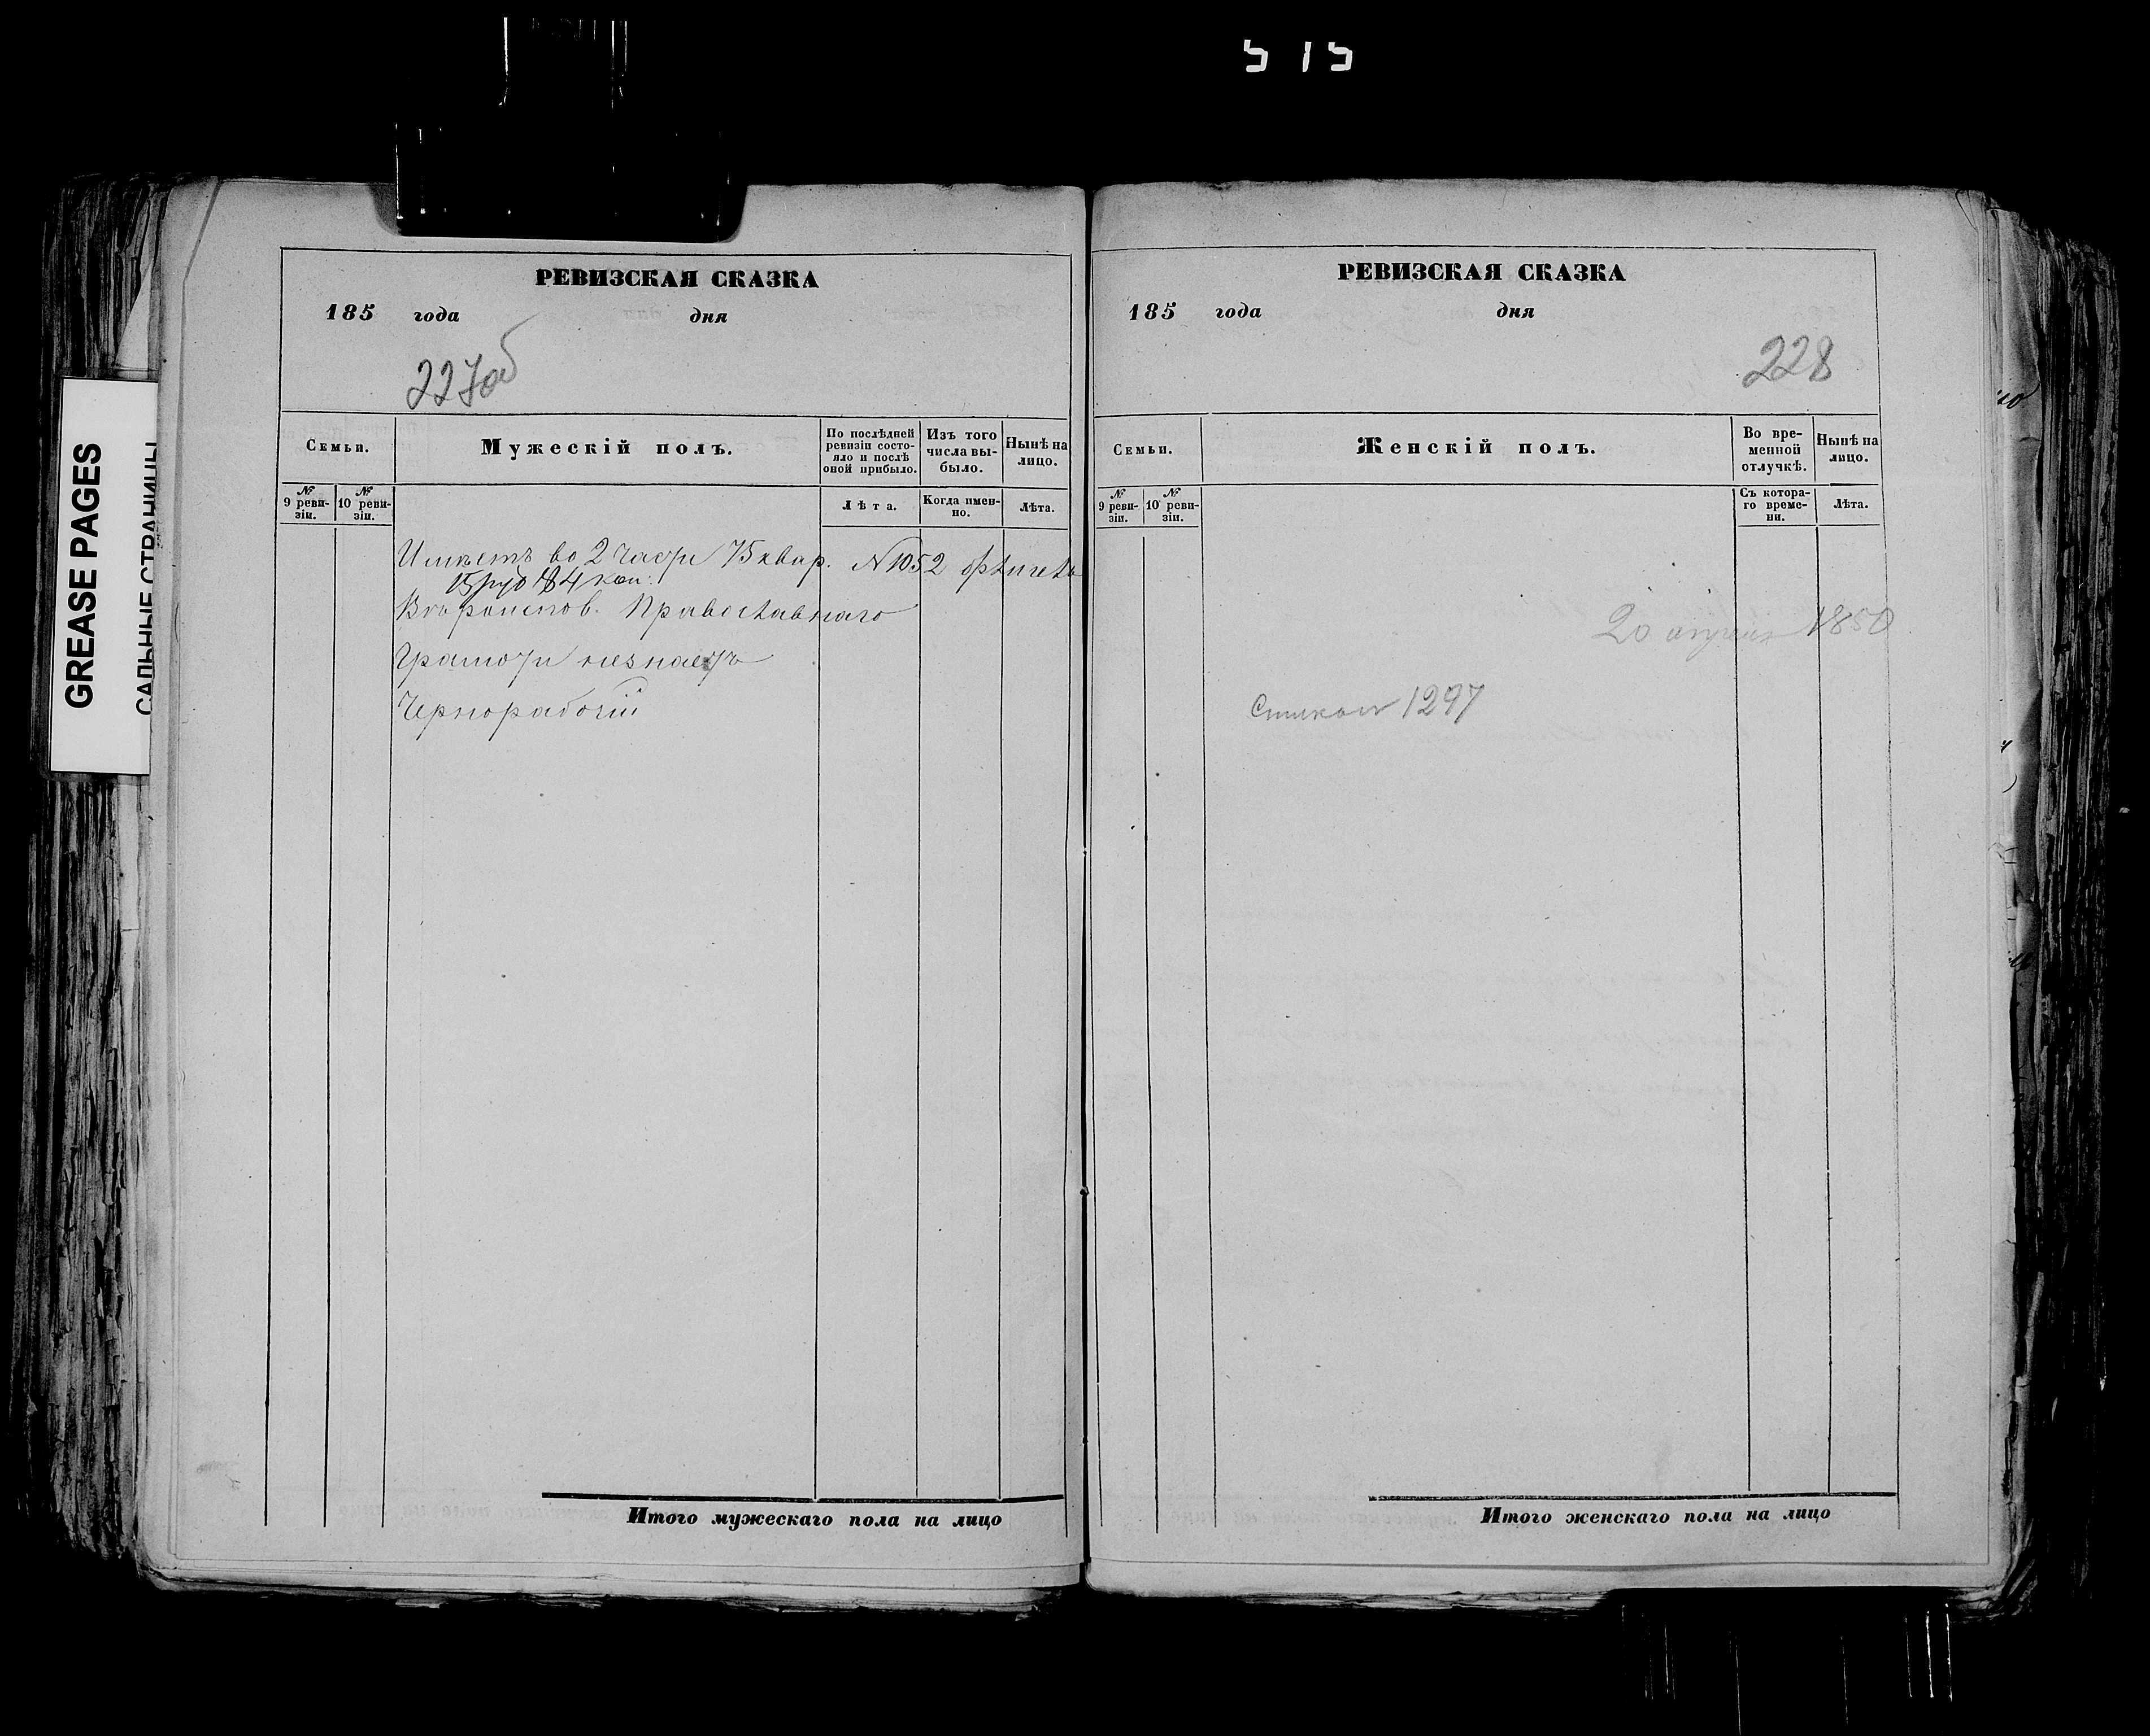 515
GREASE PAGES
САЛЬНЫЕ СТРАНИЦЫ
РЕВИЗСКАЯ СКАЗКА
185 года дня
227об
Семьи.
Мужескій полъ.
По послѣдней ревизіи состояло и послѣ оной прибыло.
Изъ того числа выбыло.
Нынѣ на лицо.
№ 9 ревизіи.
№ 10 ревизіи.
Лѣта.
Когда именно.
Лѣта.
Имѣетъ во 2 части 75 квар. № 1052
15 руб 84 коп.
Вѣроиспов. Православнаго
Грамоти незнаетъ
Чернорабочій
Итого мужескаго пола на лицо
РЕВИЗСКАЯ СКАЗКА
185 года дня
228
Семьи.
Женскій полъ.
Во временной отлучкѣ.
Нынѣ на лицо.
№ 9 ревизіи.
№ 10 ревизіи.
Съ котораго времени.
Лѣта.
20 апреля 1850
1297
Итого женскаго пола на лицо